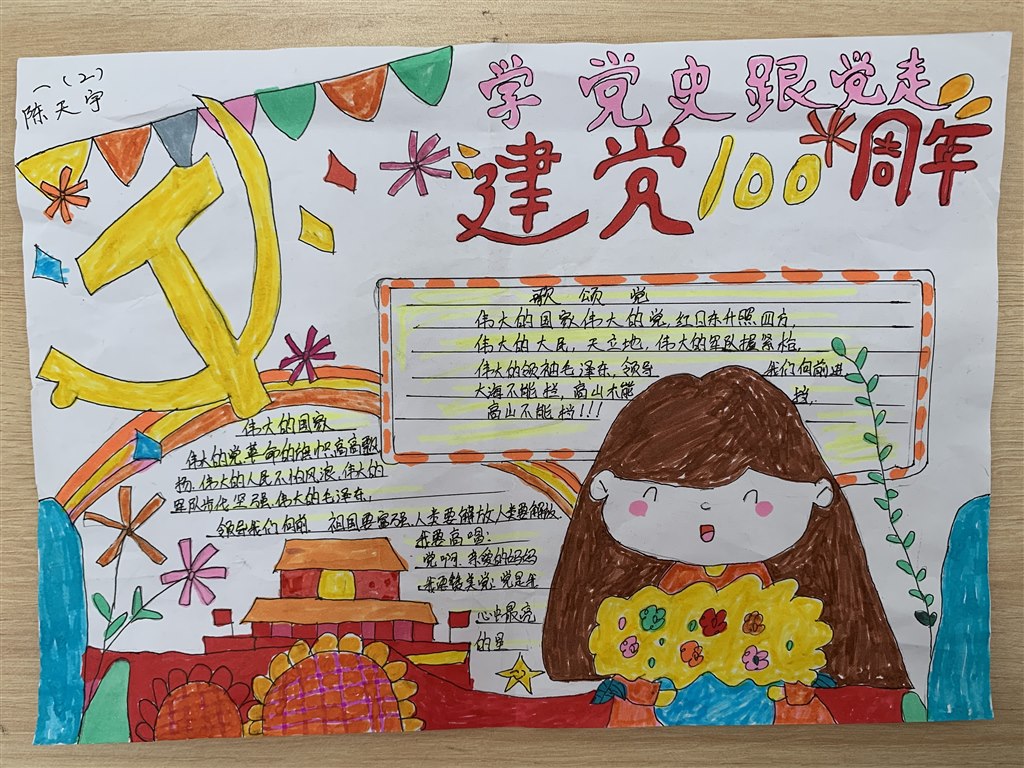 一(2)
陈天宇
学党史跟党走
建党100周年
歌颂党
伟大的国家伟大的党,红日东升照四方,
伟大的人民,天立地,伟大的军队握紧枪,
伟大的领袖毛泽东,领导 我们向前进
大海不能拦,高山不能 挡,
高山不能挡!!!
伟大的国家
伟大的党革命的旗帜高高飘
扬,伟大的人民不怕风浪,伟大的
军队 坚强,伟大的毛泽东,
领导我们向前 祖国要富强,人类要解放人类要解放,
我要高唱:
党啊,亲爱的妈妈
党是我
心中最亮
的星